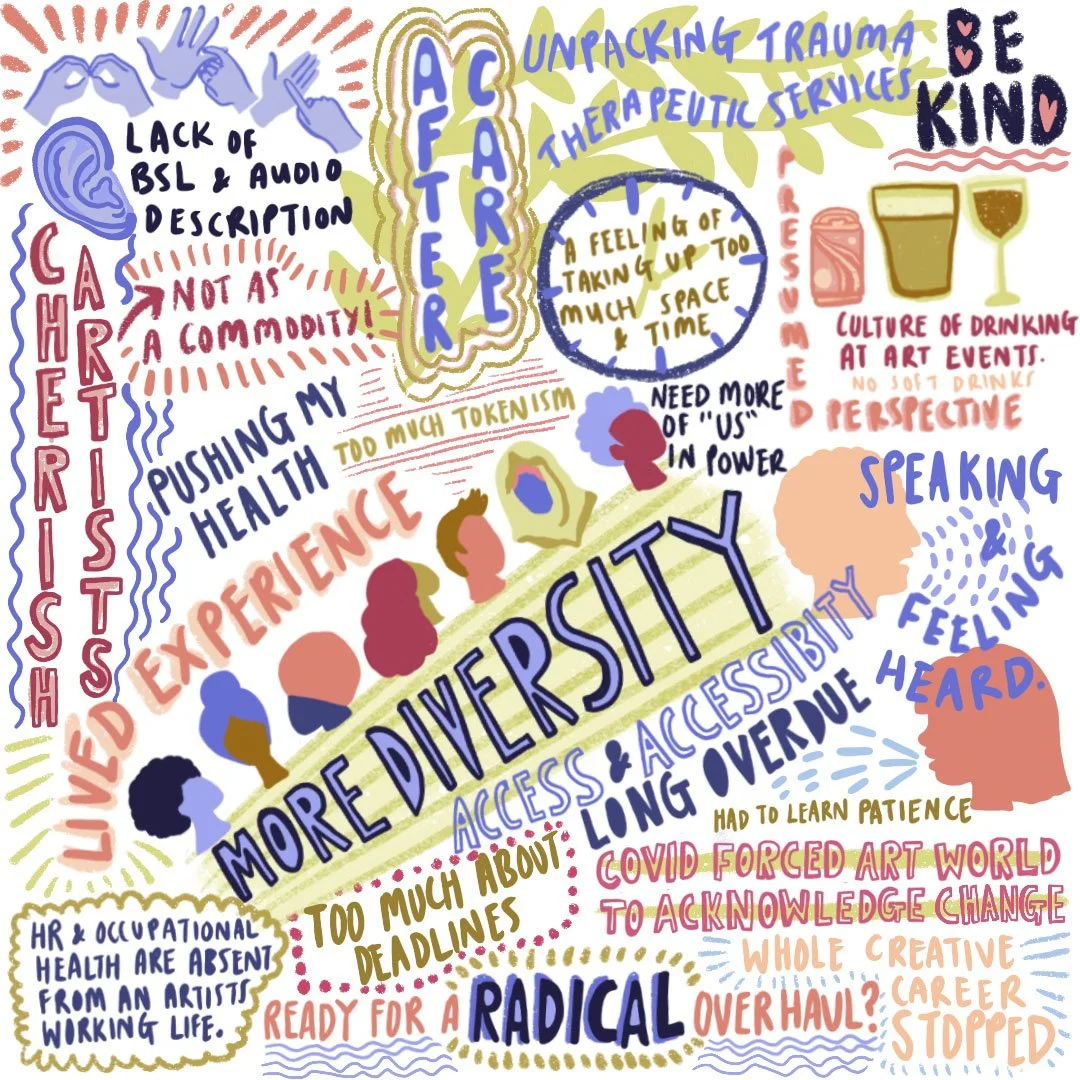 LACK OF
BSL & AUDIO
DESCRIPTION
AFTER
CARE
UNPACKING TRAUMA
THERAPEUTIC SERVICES
BE
KIND
CHERISH
ARTISTS
NOT AS
A COMMODITY!
A FEELING OF
TAKING UP TOO
MUCH SPACE
& TIME
PRESUMED
PERSPECTIVE
CULTURE OF DRINKING
AT ART EVENTS.
NO SOFT DRINKS
PUSHING MY
HEALTH
TOO MUCH TOKENISM
NEED MORE
OF "US"
IN POWER
SPEAKING
&
FEELING
HEARD.
LIVED EXPERIENCE
MORE DIVERSITY
ACCESS & ACCESSIBITY
LONG OVERDUE
HAD TO LEARN PATIENCE
COVID FORCED ART WORLD
TO ACKNOWLEDGE CHANGE
TOO MUCH ABOUT
DEADLINES
HR & OCCUPATIONAL
HEALTH ARE ABSENT
FROM AN ARTISTS
WORKING LIFE.
READY FOR A RADICAL OVERHAUL?
WHOLE CREATIVE
CAREER
STOPPED